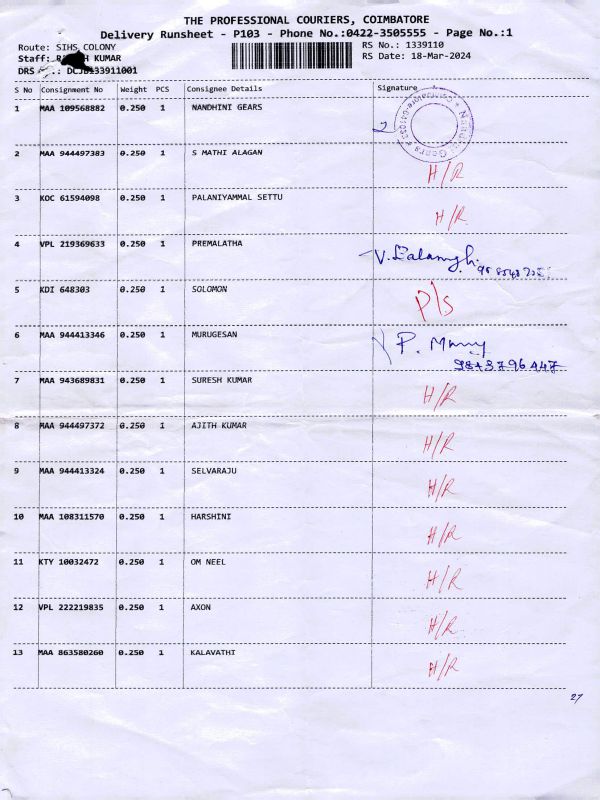 THE PROFESSIONAL COURIERS, COIMBATORE
Delivery Runsheet - P103 - Phone No.:0422-3505555 - Page No.:1
Route: SIHS COLONY RS No.: 1339110
Staff: KUMAR RS Date: 18-Mar-2024
DRS
S No Consignment No Weight PCS Consignee Details Signature
1 MAA 109568882 0.250 1 NANDHINI GEARS
2 MAA 944497383 0.250 1 S MATHI ALAGAN H/R
3 KOC 61594098 0.250 1 PALANIYAMMAL SETTU H/R
4 VPL 219369633 0.250 1 PREMALATHA
5 KDI 648303 0.250 1 SOLOMON P/S
6 MAA 944413346 0.250 1 MURUGESAN P.
7 MAA 943689831 0.250 1 SURESH KUMAR H/R
8 MAA 944497372 0.250 1 AJITH KUMAR H/R
9 MAA 944413324 0.250 1 SELVARAJU H/R
10 MAA 108311570 0.250 1 HARSHINI H/R
11 KTY 10032472 0.250 1 OM NEEL H/R
12 VPL 222219835 0.250 1 AXON H/R
13 MAA 863580260 0.250 1 KALAVATHI H/R
27